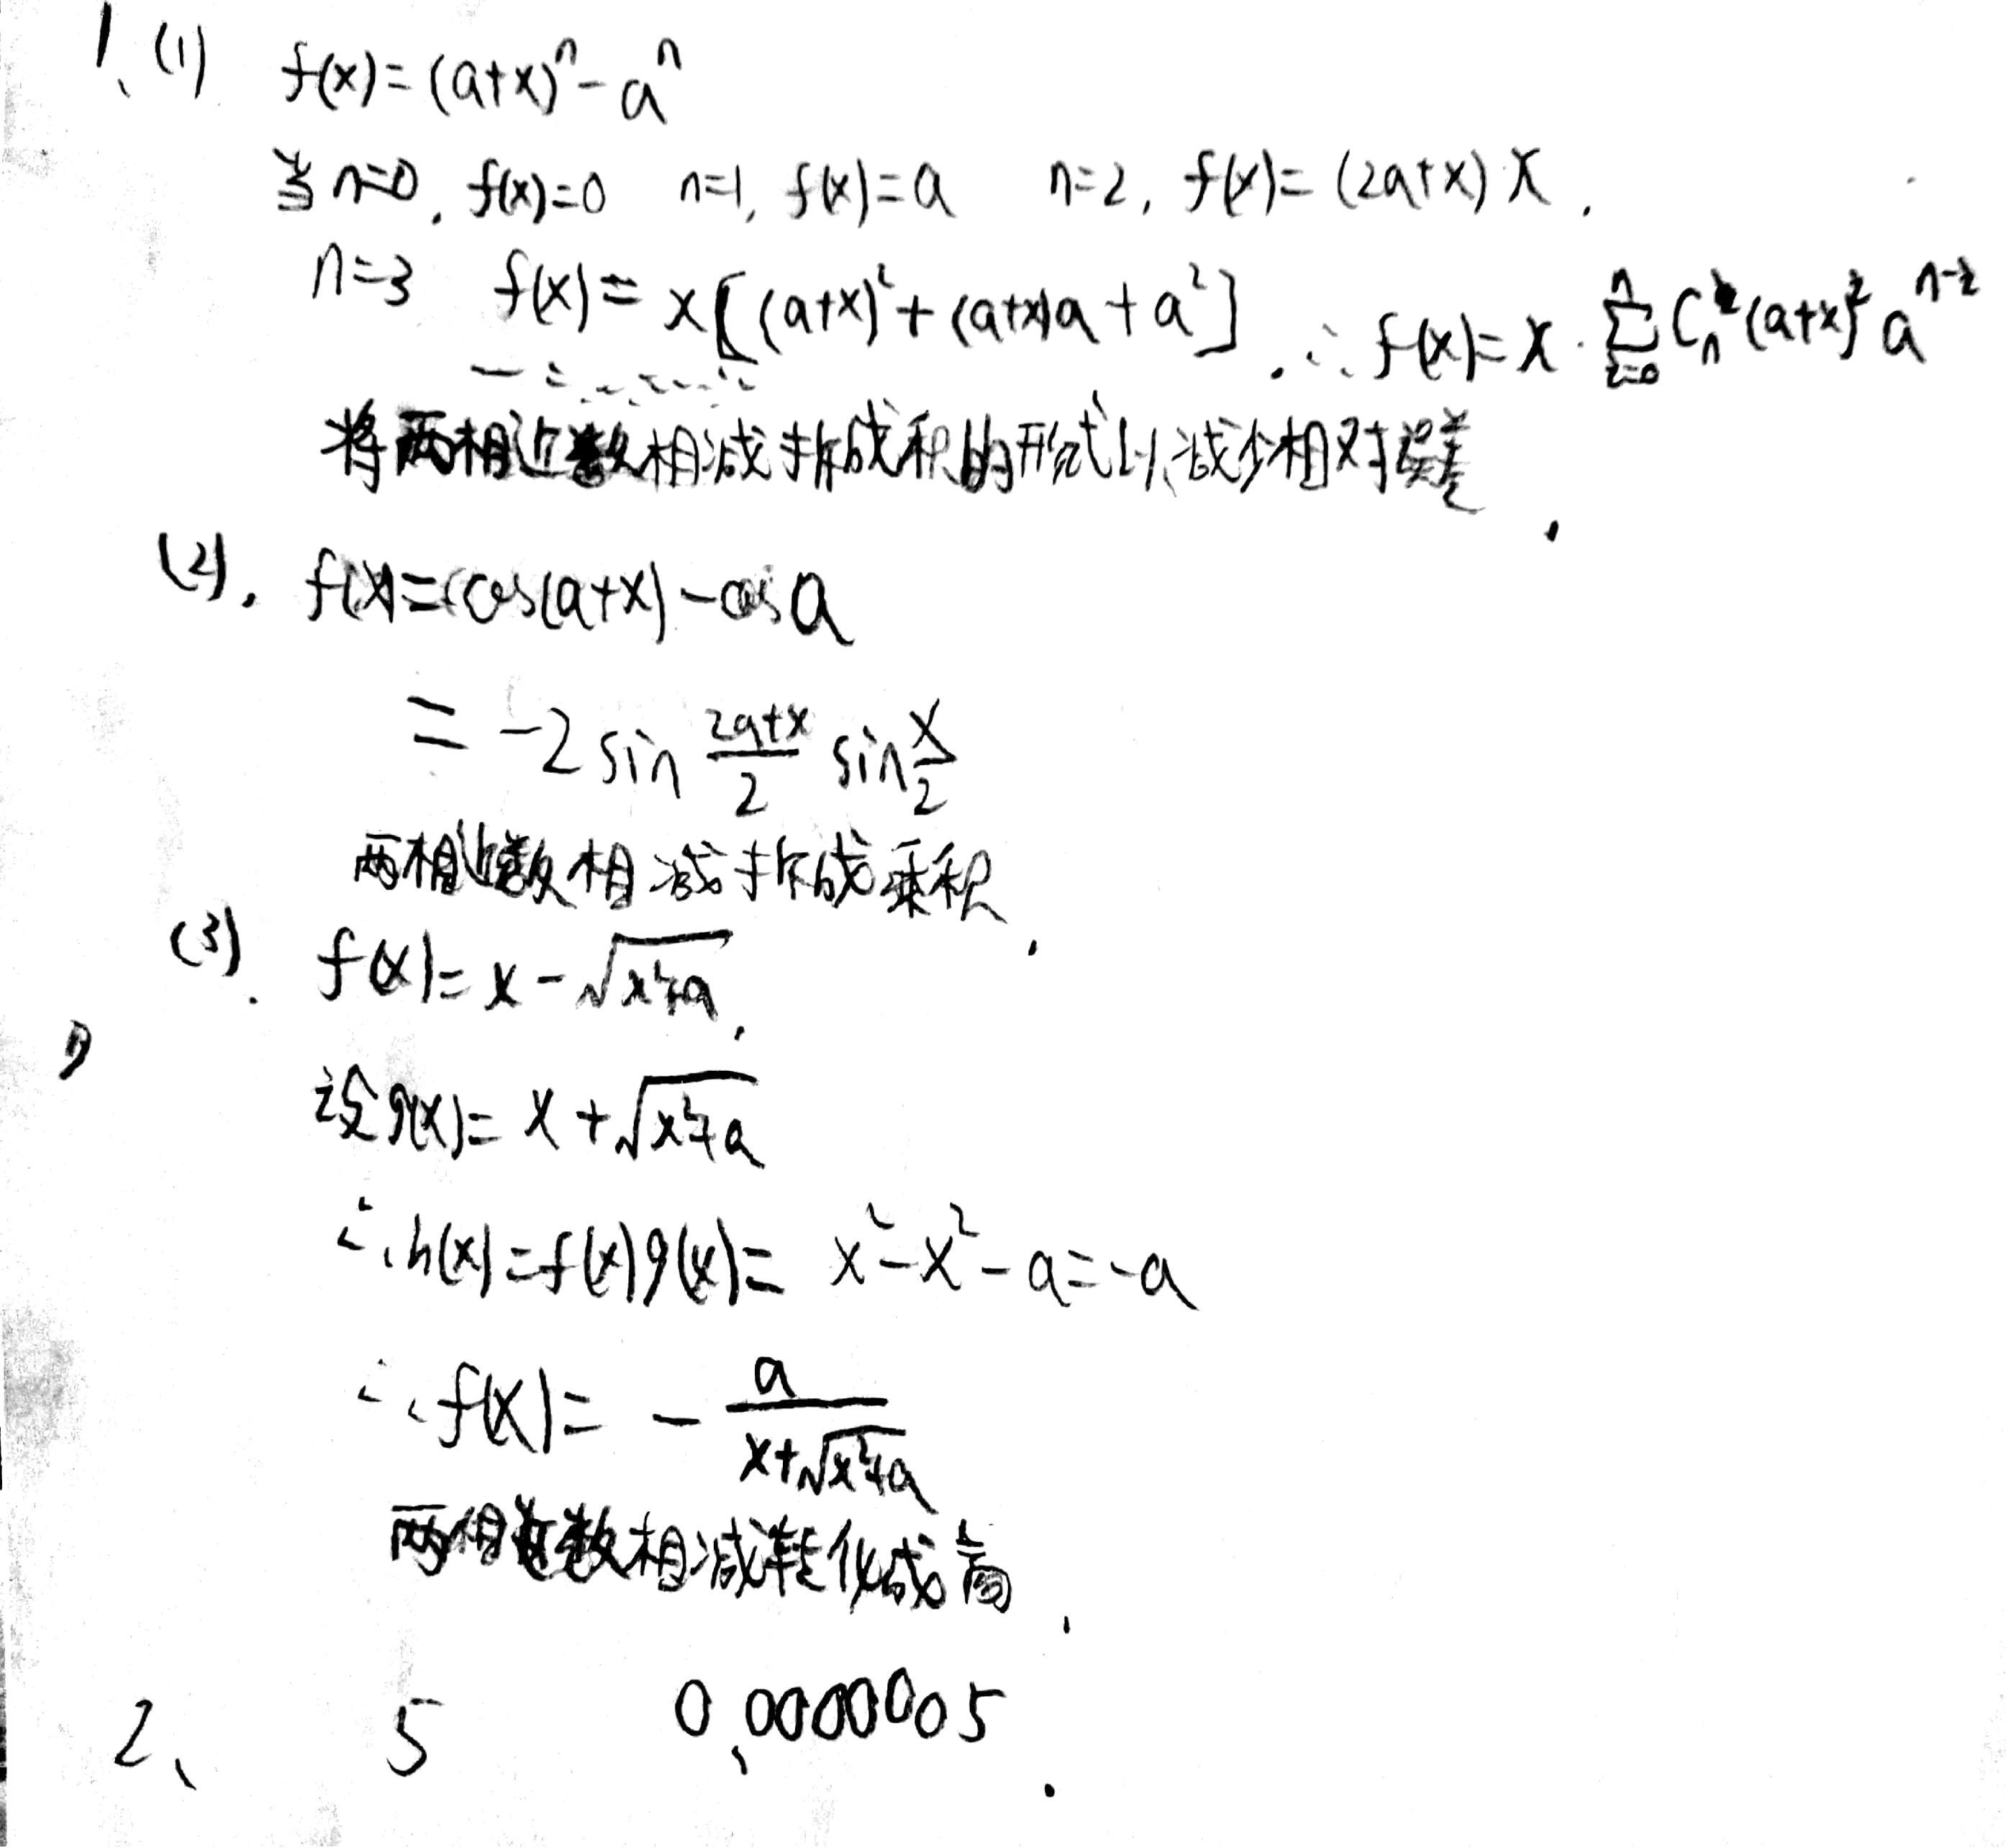 1、(1) f(x)=(a+x)^n-a^n
当n=0, f(x)=0 n=1, f(x)=a n=2, f(x)=(2a+x)x.
n=3 f(x)=x[(a+x)²+(a+x)a+a²]. ∴f(x)=x·∑_{i=0}^{n} C_n^i (a+x)^i a^{n-i}
将两相近数相减拆成积的形式以减少相对误差.
(2). f(x)=cos(a+x)-cos a
=-2 sin (2a+x)/2 sin x/2
两相近数相减拆成乘积.
(3). f(x)=x-√(x²+a).
设g(x)=x+√(x²+a)
∴h(x)=f(x)g(x)=x²-x²-a=-a
∴f(x)=-a/(x+√(x²+a))
两相近数相减转化成商.
2、 5 0.0000005.